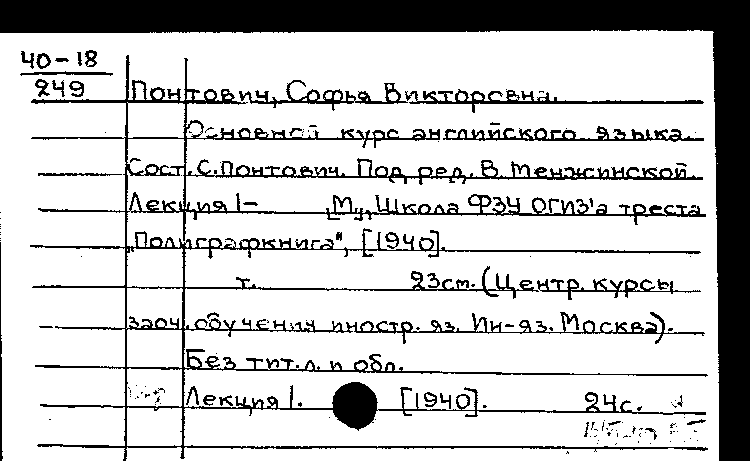 40-18
249
Понтович, Софья Викторовна.
Основной курс английского языка.
Сост. С. Понтович. Под ред. В. Менжинской.
Лекция 1- [М.], Школа ФЗУ ОГИЗ'а треста
„Полиграфкнига", [1940].
т. 23см. (Центр. курсы
заоч. обучения иностр. яз. Ин-яз. Москва).
Без тит. л. и обл.
Лекция 1. [1940]. 24с.